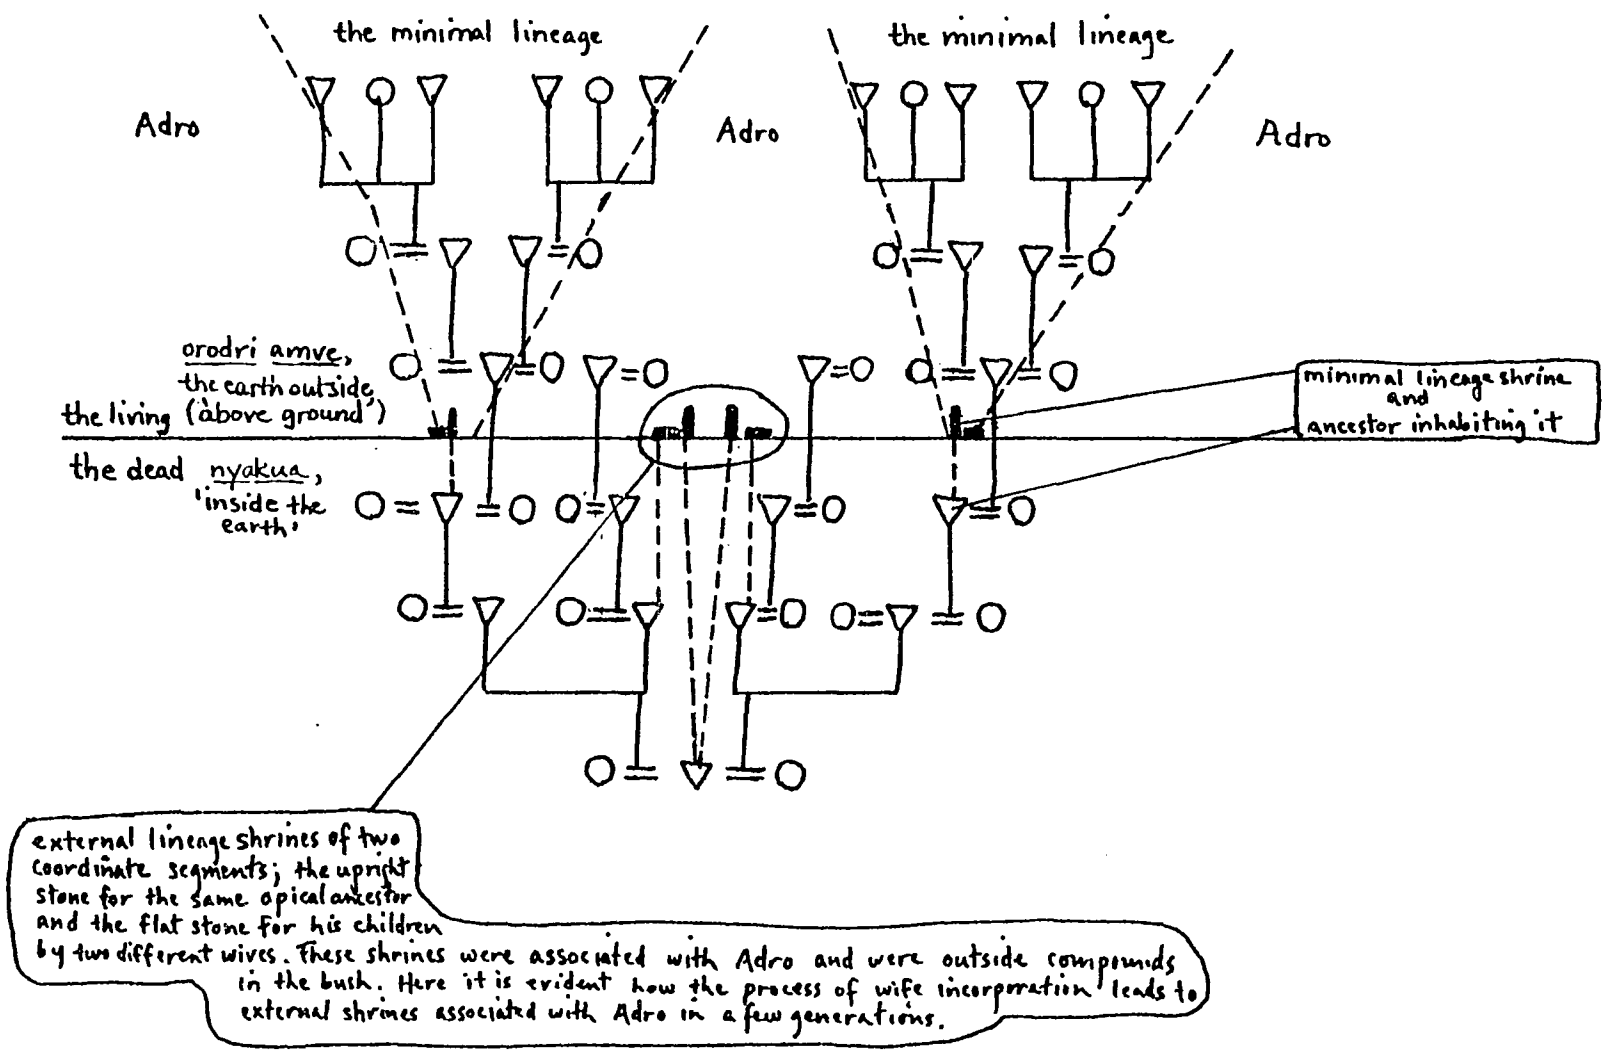 the minimal lineage
the minimal lineage
Adro
Adro
Adro
orodri amve,
the earth outside,
the living ('above ground')
the dead nyakua,
'inside the
earth'
minimal lineage shrine
and
ancestor inhabiting it
external lineage shrines of two
coordinate segments; the upright
stone for the same apical ancestor
and the flat stone for his children
by two different wives. These shrines were associated with Adro and were outside compounds
in the bush. Here it is evident how the process of wife incorporation leads to
external shrines associated with Adro in a few generations.